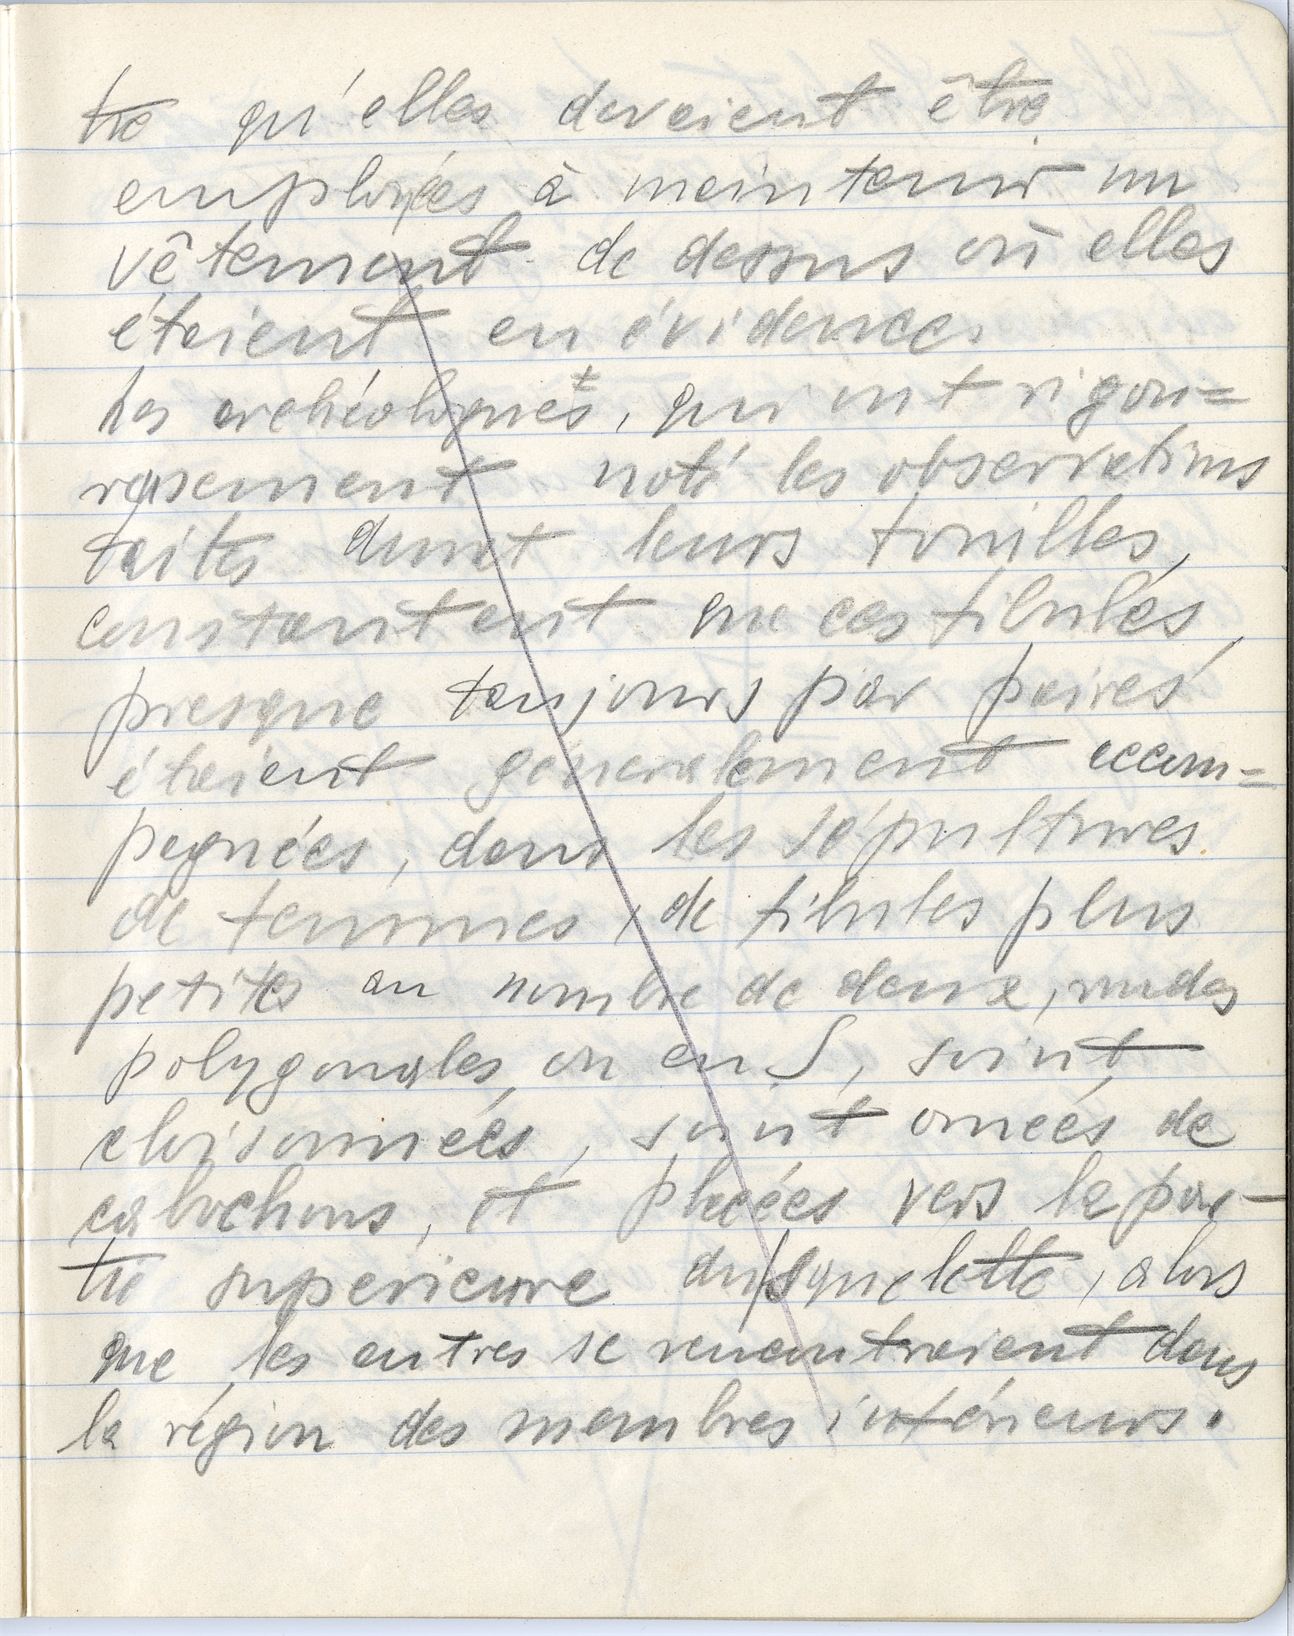 tre qu'elles devaient être
employées à maintenir un
vêtement de dessus où elles
étaient en évidence.
Les archéologues, qui ont rigou=
reusement noté les observations
faites durant leurs fouilles,
constantent que ces fibules,
presque toujours par paires
étaient généralement accom=
pagnées, dans les sépultures
de femmes, de fibules plus
petites au nombre de deux, rondes
polygonales ou en S, soint
cloisonnées, soint ornées de
cabochons, et placées vers la par-
tie supérieure du squelette, alors
que les autres se rencontraient dans
la région des membres inférieurs.